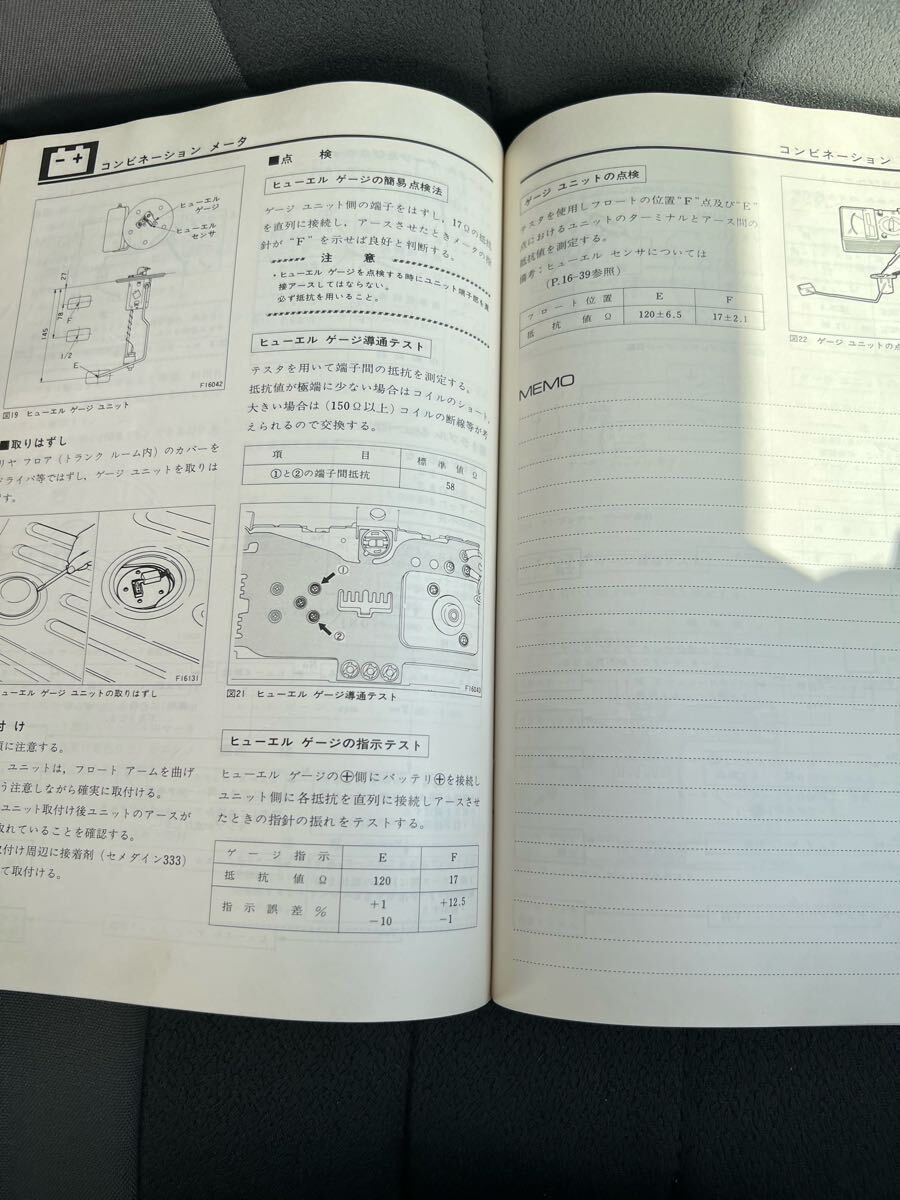 コンビネーション メータ
ヒューエル
ゲージ
ヒューエル
センサ
27
78
145
F
1/2
E
F16042
図19 ヒューエル ゲージ ユニット
■取りはずし
リヤ フロア (トランク ルーム内) のカバーを
ドライバ等ではずし, ゲージ ユニットを取りは
す。
F16131
ューエル ゲージ ユニットの取りはずし
付 け
に注意する。
ユニットは, フロート アームを曲げ
う注意しながら確実に取付ける。
ユニット取付け後ユニットのアースが
取れていることを確認する。
取付け周辺に接着剤 (セメダイン333)
て取付ける。
■点 検
ヒューエル ゲージの簡易点検法
ゲージ ユニット側の端子をはずし, 17Ωの抵抗
を直列に接続し, アースさせたときメータの指
針が “F” を示せば良好と判断する。
注 意
・ヒューエル ゲージを点検する時にユニット端子部を直
接アースしてはならない。
必ず抵抗を用いること。
ヒューエル ゲージ導通テスト
テスタを用いて端子間の抵抗を測定する。
抵抗値が極端に少ない場合はコイルのショート,
大きい場合は (150Ω以上) コイルの断線等が考
えられるので交換する。
項 目 標 準 値 Ω
①と②の端子間抵抗 58
①
②
F16043
図21 ヒューエル ゲージ導通テスト
ヒューエル ゲージの指示テスト
ヒューエル ゲージの⊕側にバッテリ⊕を接続し
ユニット側に各抵抗を直列に接続しアースさせ
たときの指針の振れをテストする。
ゲ ー ジ 指 示 E F
抵 抗 値 Ω 120 17
指 示 誤 差 % +1 -10 +12.5 -1
コンビネーション
ゲージ ユニットの点検
テスタを使用しフロートの位置“F”点及び“E”
点におけるユニットのターミナルとアース間の
抵抗値を測定する。
備考：ヒューエル センサについては
(P.16-39参照)
フ ロ ー ト 位 置 E F
抵 抗 値 Ω 120±6.5 17±2.1
図22 ゲージ ユニットの点
MEMO